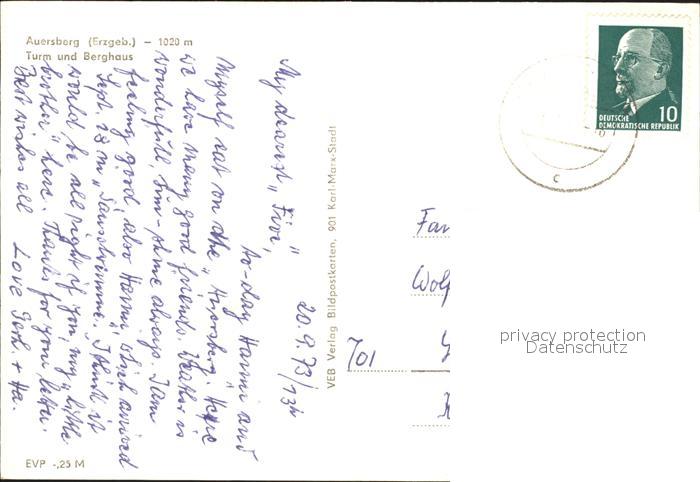 Auersberg (Erzgeb.) – 1020 m
Turm und Berghaus
20.9.73/13h
My dearest "Fixi,"
to-day Hanni and
Myself sat on the "Auersberg". Here
we have many good friends. Weather is
wonderfull, sun-shine always. I am
feeling good, also Hanni, which arrived
Sept. 18 in I think it
would be all right if you, my "little
brother" here. Thanks for your letter.
Best wishes all Love Gerh. + Ha.
EVP -,25 M
VEB Verlag Bildpostkarten, 901 Karl-Marx-Stadt
DEUTSCHE
DEMOKRATISCHE REPUBLIK 10
c
Fam
Wolf
701
privacy protection
Datenschutz